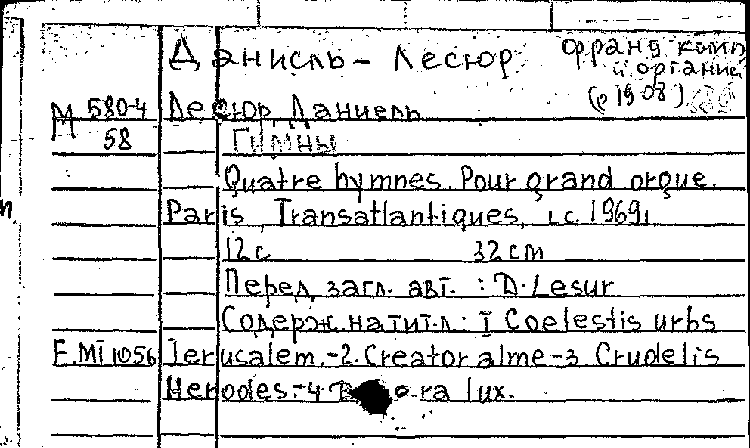 Даниель - Лесюр франц. комп. и органис (р 1908)
М 580-4 Лесюр Даниель
58 Гимны
Quatre hymnes. Pour grand orgue.
Paris, Transatlantiques, [c. 1969]
12 с 32 cm
Перед загл. авт. : D. Lesur
Содерж. на тит. л: I Coelestis urbs
F.MI 1056 Jerusalem.-2. Creator alme -3 Crudelis
Herodes.-4 ora lux.